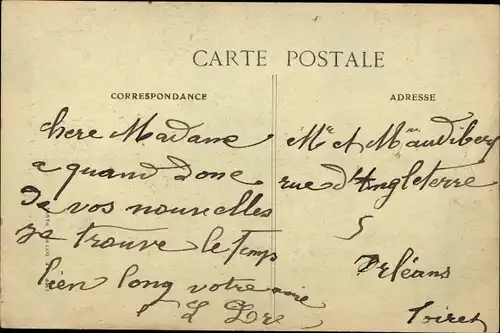 CARTE POSTALE
CORRESPONDANCE
chere Madame
a quand donc
De vos nouvelles
je trouve le Temps
bien long votre amie
ADRESSE
Mr et Me
rue d'Angleterre
5
Orléans
Loiret